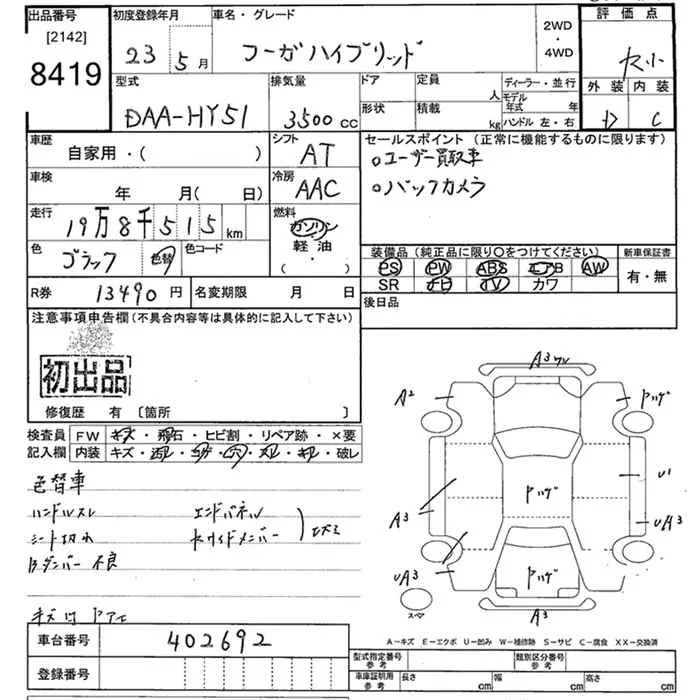 出品番号 初度登録年月 車名・グレード 2WD 評価点
[2142] 23年5月 フーガハイブリッド ・
8419 4WD
型式 排気量 ドア 定員 人 ディーラー・並行 外装 内装
DAA-HY51 3500cc 形状 積載 kg モデル年式 年 D C
ハンドル 左・右
車歴 自家用・( ) シフト AT セールスポイント (正常に機能するものに限ります)
○ユーザー買取車
車検 年 月( 日) 冷房 AAC ○バックカメラ
走行 19万8千515km 燃料 ガソリン
軽油
( ・ )
色 ブラック 色替 色コード 装備品 (純正品に限り○をつけてください) 新車保証書
PS PW ABS エアB AW 有・無
R券 13490円 名変期限 月 日 SR ナビ TV カワ
後日品
注意事項申告欄 (不具合内容等は具体的に記入して下さい)
初出品
修復歴 有 〔箇所 〕
検査員 FW キズ・飛石・ヒビ割・リペア跡・×要
記入欄 内装 キズ・・コゲ・穴・・・破レ
A2
A3
A3
UA3
U1
UA3
A3
スペア
色替車
ハンドルスレ エンドパネル
シート切れ
不良
車台番号 402692
A-キズ E-エクボ U-凹み W-補修跡 S-サビ C-腐食 XX-交換済
登録番号
型式指定番号 参考 類別区分番号 参考
車庫証明用 参考 長さ cm 幅 cm 高さ cm